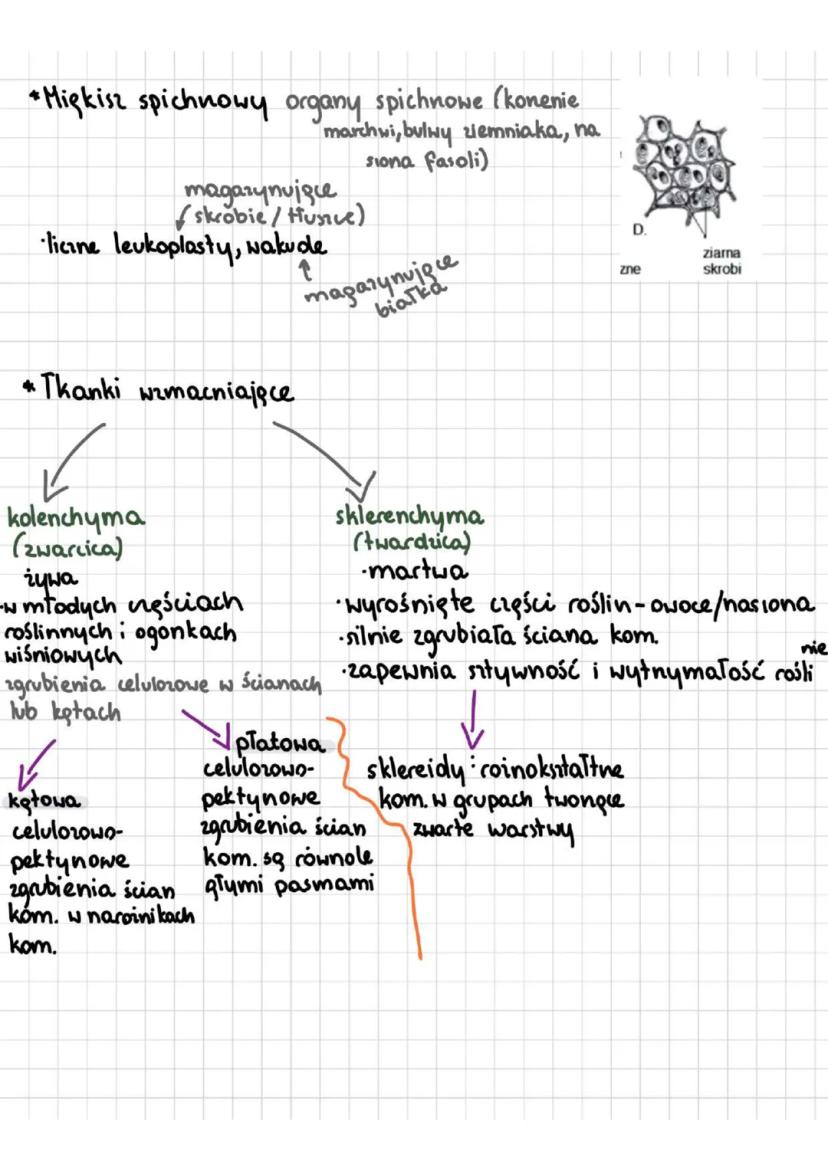 *Miękisz spichrzowy organy spichrzowe (korzenie
marchwi, bulwy ziemniaka, na
siona fasoli)
magazynujące
(skrobie / tłuszcze)
·liczne leukoplasty, wakuole
magazynujące
białka
D.
ziarna
zne
skrobi
*Tkanki wzmacniające
kolenchyma
(zwarcica)
żywa
·w młodych częściach
roślinnych i ogonkach
wiśniowych
zgrubienia celulozowe w ścianach
lub kątach
kątowa
celulozowo-
pektynowe
zgrubienia ścian
kom. w narożnikach
kom.
płatowa
celulozowo-
pektynowe
zgrubienia ścian
kom. są równole
głymi pasmami
sklerenchyma
(twardzica)
·martwa
·wyrośnięte części roślin-owoce/nasiona
·silnie zgrubiała ściana kom.
nie
·zapewnia sztywność i wytrzymałość rośli
sklereidy: różnokształtne
kom. w grupach tworzące
zwarte warstwy